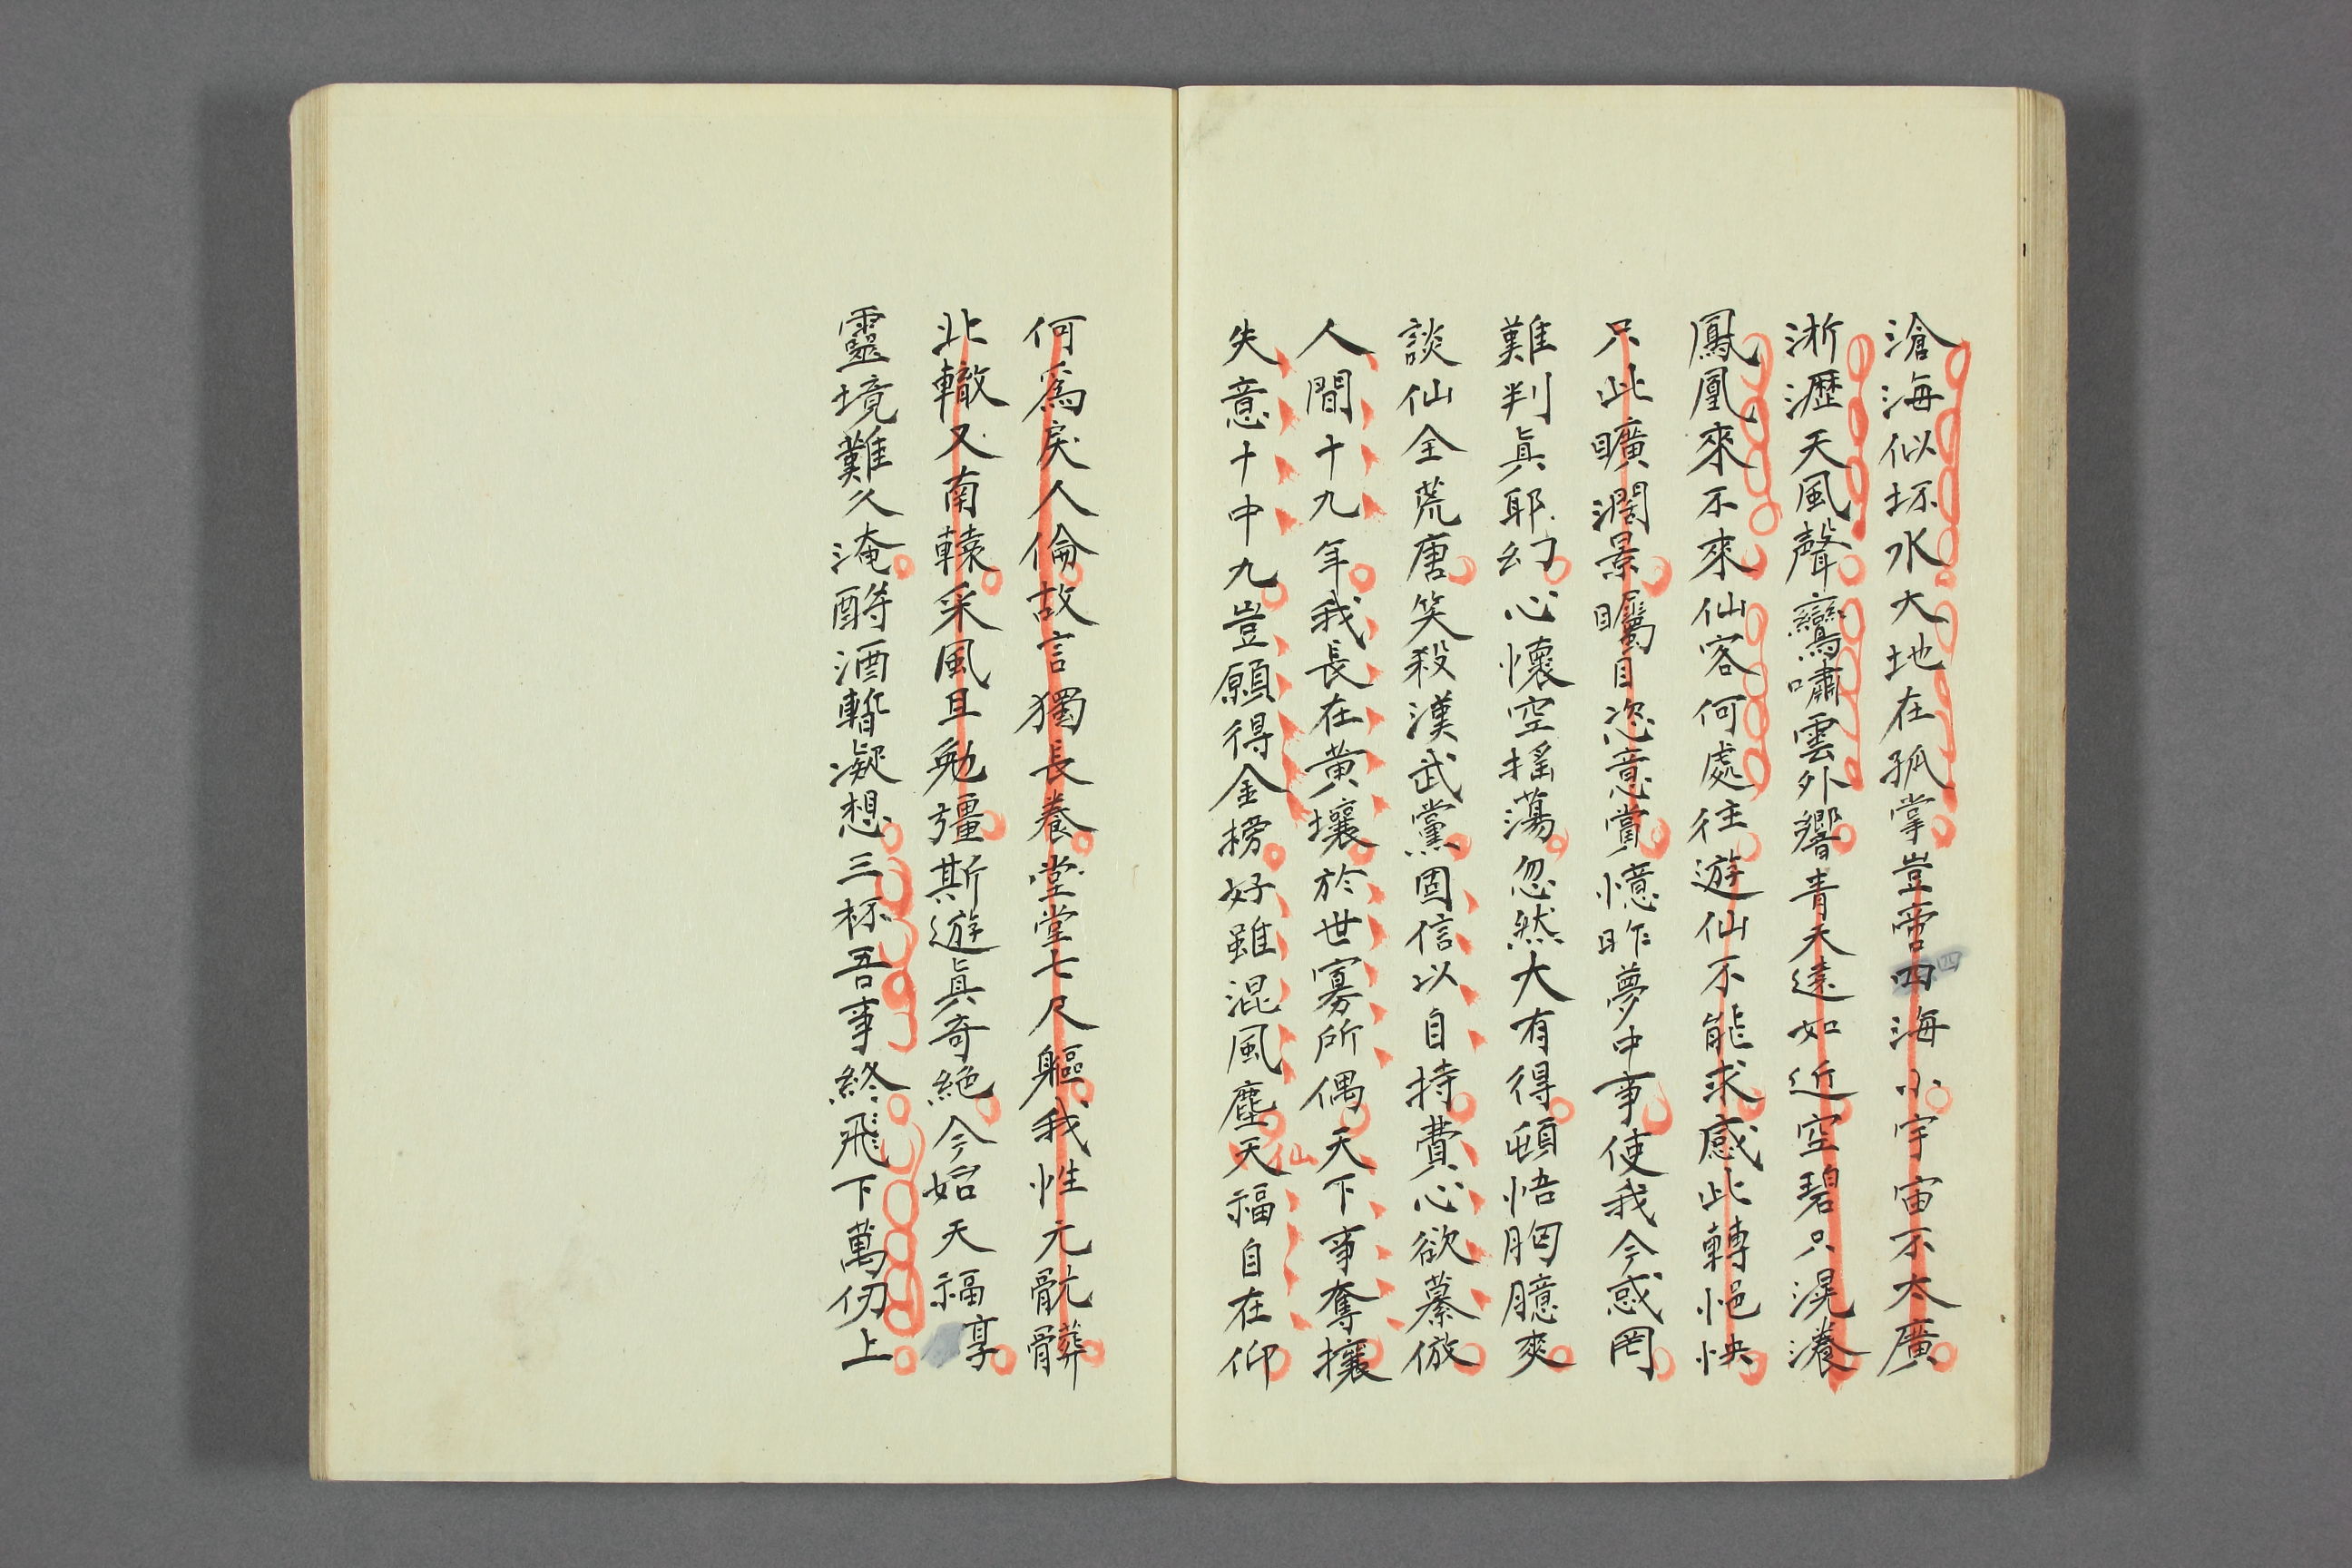 滄海似坏水大地在孤掌豈啻四四海小宇宙不太廣
淅瀝天風聲鸞嘯雲外響青天遠如近空碧只滉瀁
鳳凰來不來仙客何處往遊仙不能求感此轉悒怏
只此曠濶景矚目恣意賞憶昨夢中事使我今惑罔
難判眞耶幻心懷空搖蕩忽然大有得頓悟胸臆爽
談仙全荒唐笑殺漢武黨固信以自持費心欲慕倣
人間十九年我長在黄壤於世寡所偶天下事奪攘
失意十中九豈願得金榜好雖混風塵天仙福自在仰
何爲戾人倫故言獨長養堂堂七尺軀我性元骯髒
北轍又南轅采風且勉彊斯遊眞奇絶今始天福享
靈境難久淹酹酒暫凝想三杯吾事終飛下萬仞上